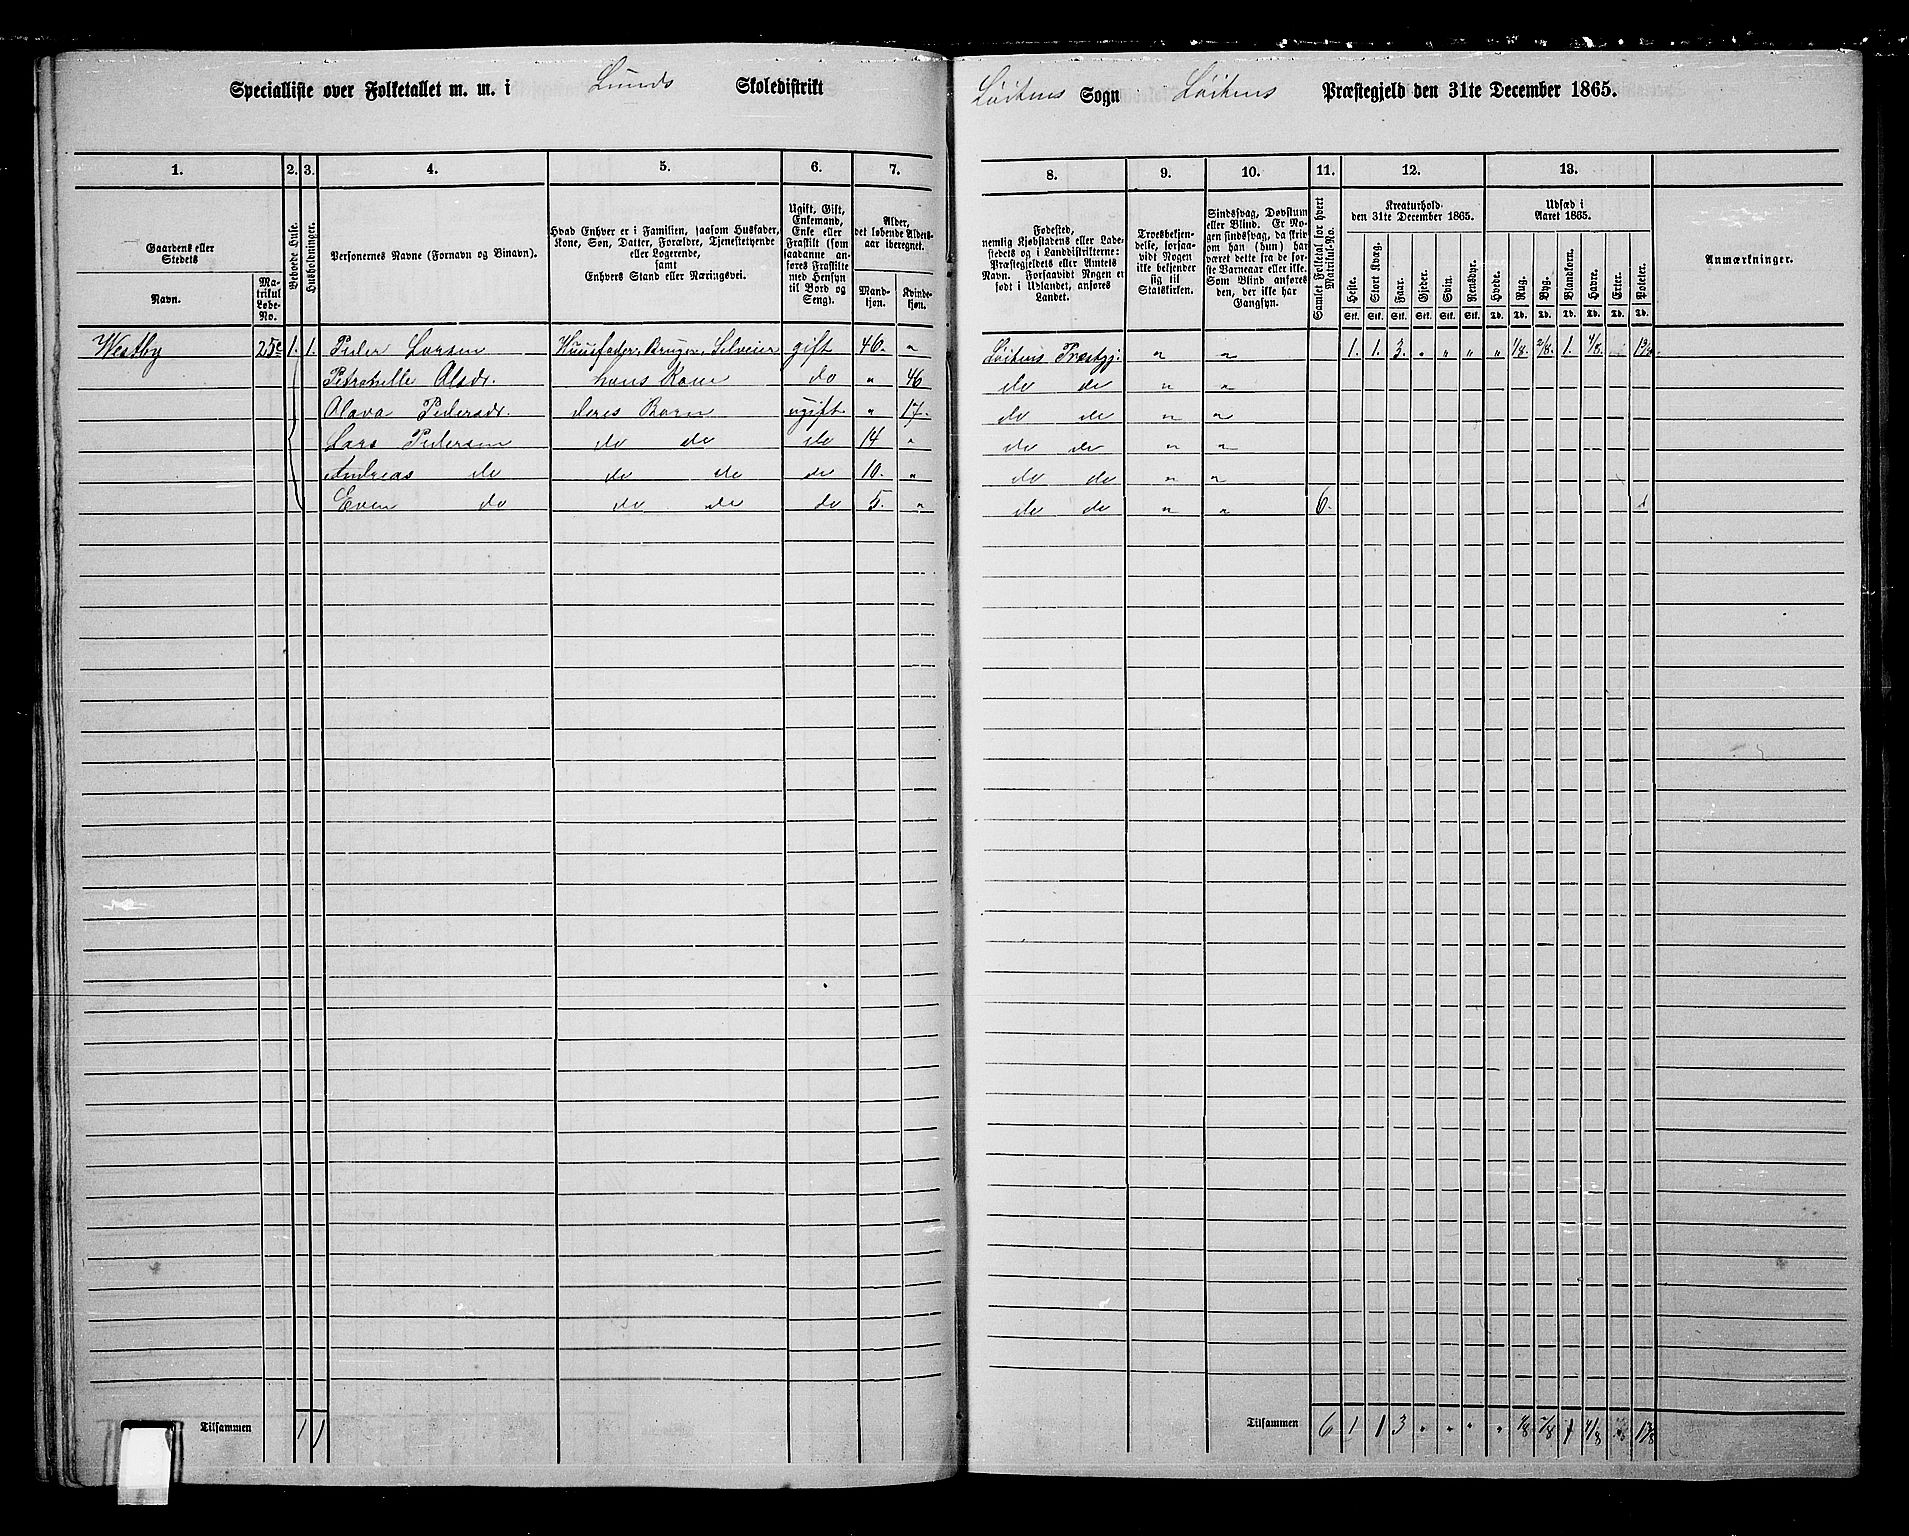 Specialliste over Folketallet m. m. i Lunds Skoledistrikt Løitens Sogn Løitens Præstegjeld den 31te December 1865.
1. 2. 3. 4. 5. 6. 7. 8. 9. 10. 11. 12. 13.
Gaardens eller Stedets
Navn.
Matrikul Løbe-No.
Beboede Huse.
Husholdninger.
Personernes Navne (Fornavn og Binavn).
Hvad Enhver er i Familien, saasom Husfader,
Kone, Søn, Datter, Forældre, Tjenestetyende
eller Logerende,
samt
Enhvers Stand eller Næringsvei.
Ugift, Gift,
Enkemand,
Enke eller
Fraskilt (som
saadanne anføres
Fraskilte
med Hensyn
til Bord og
Seng).
Alder,
det løbende Aldersaar
iberegnet.
Mandkjøn.
Kvindekjøn.
Fødested,
nemlig Kjøbstadens eller Ladestedets
og i Landdistrikterne:
Præstegjeldets eller Amtets
Navn. Forsaavidt Nogen er
født i Udlandet, anføres
Landet.
Troesbekjendelse,
forsaavidt
Nogen
ikke bekjender
sig til
Statskirken.
Sindssvag, Døvstum
eller Blind. Er Nogen
sindssvag, da skriv
om han (hun) har
været dette fra de første
Barneaar eller ikke.
Som Blind anføres
den, der ikke har
Gangsyn.
Samlet Folketal for hvert
Matrikul-No.
Kreaturhold
den 31te December 1865.
Heste. Stort Kvæg. Faar. Gjeder. Svin. Rensdyr.
Stk. Stk. Stk. Stk. Stk. Stk.
Udsæd i
Aaret 1865.
Hvede. Rug. Byg. Blandkorn. Havre. Erter. Poteter.
Td. Td. Td. Td. Td. Td. Td.
Anmærkninger.
Westby 25c 1. 1. Peder Larsen Huusfader, Bruger, Selveier gift 46. " Løitens Præstgj. " " 1. 1. 3. " " " " 1/8. 2/8. 1. 4/8.
Petronelle Alsdr. hans Kone do " 46 do do " "
Olava Pedersdr. deres Barn ugift " 17. do do " "
Lars Pedersen do do do 14 " do do " "
Andreas do do do do 10. " do do " "
Even do do do do 5. " do do " " 6.
Tilsammen 1 1 Tilsammen 6 1 1 3 " " " " 1/8 2/8 1 4/8